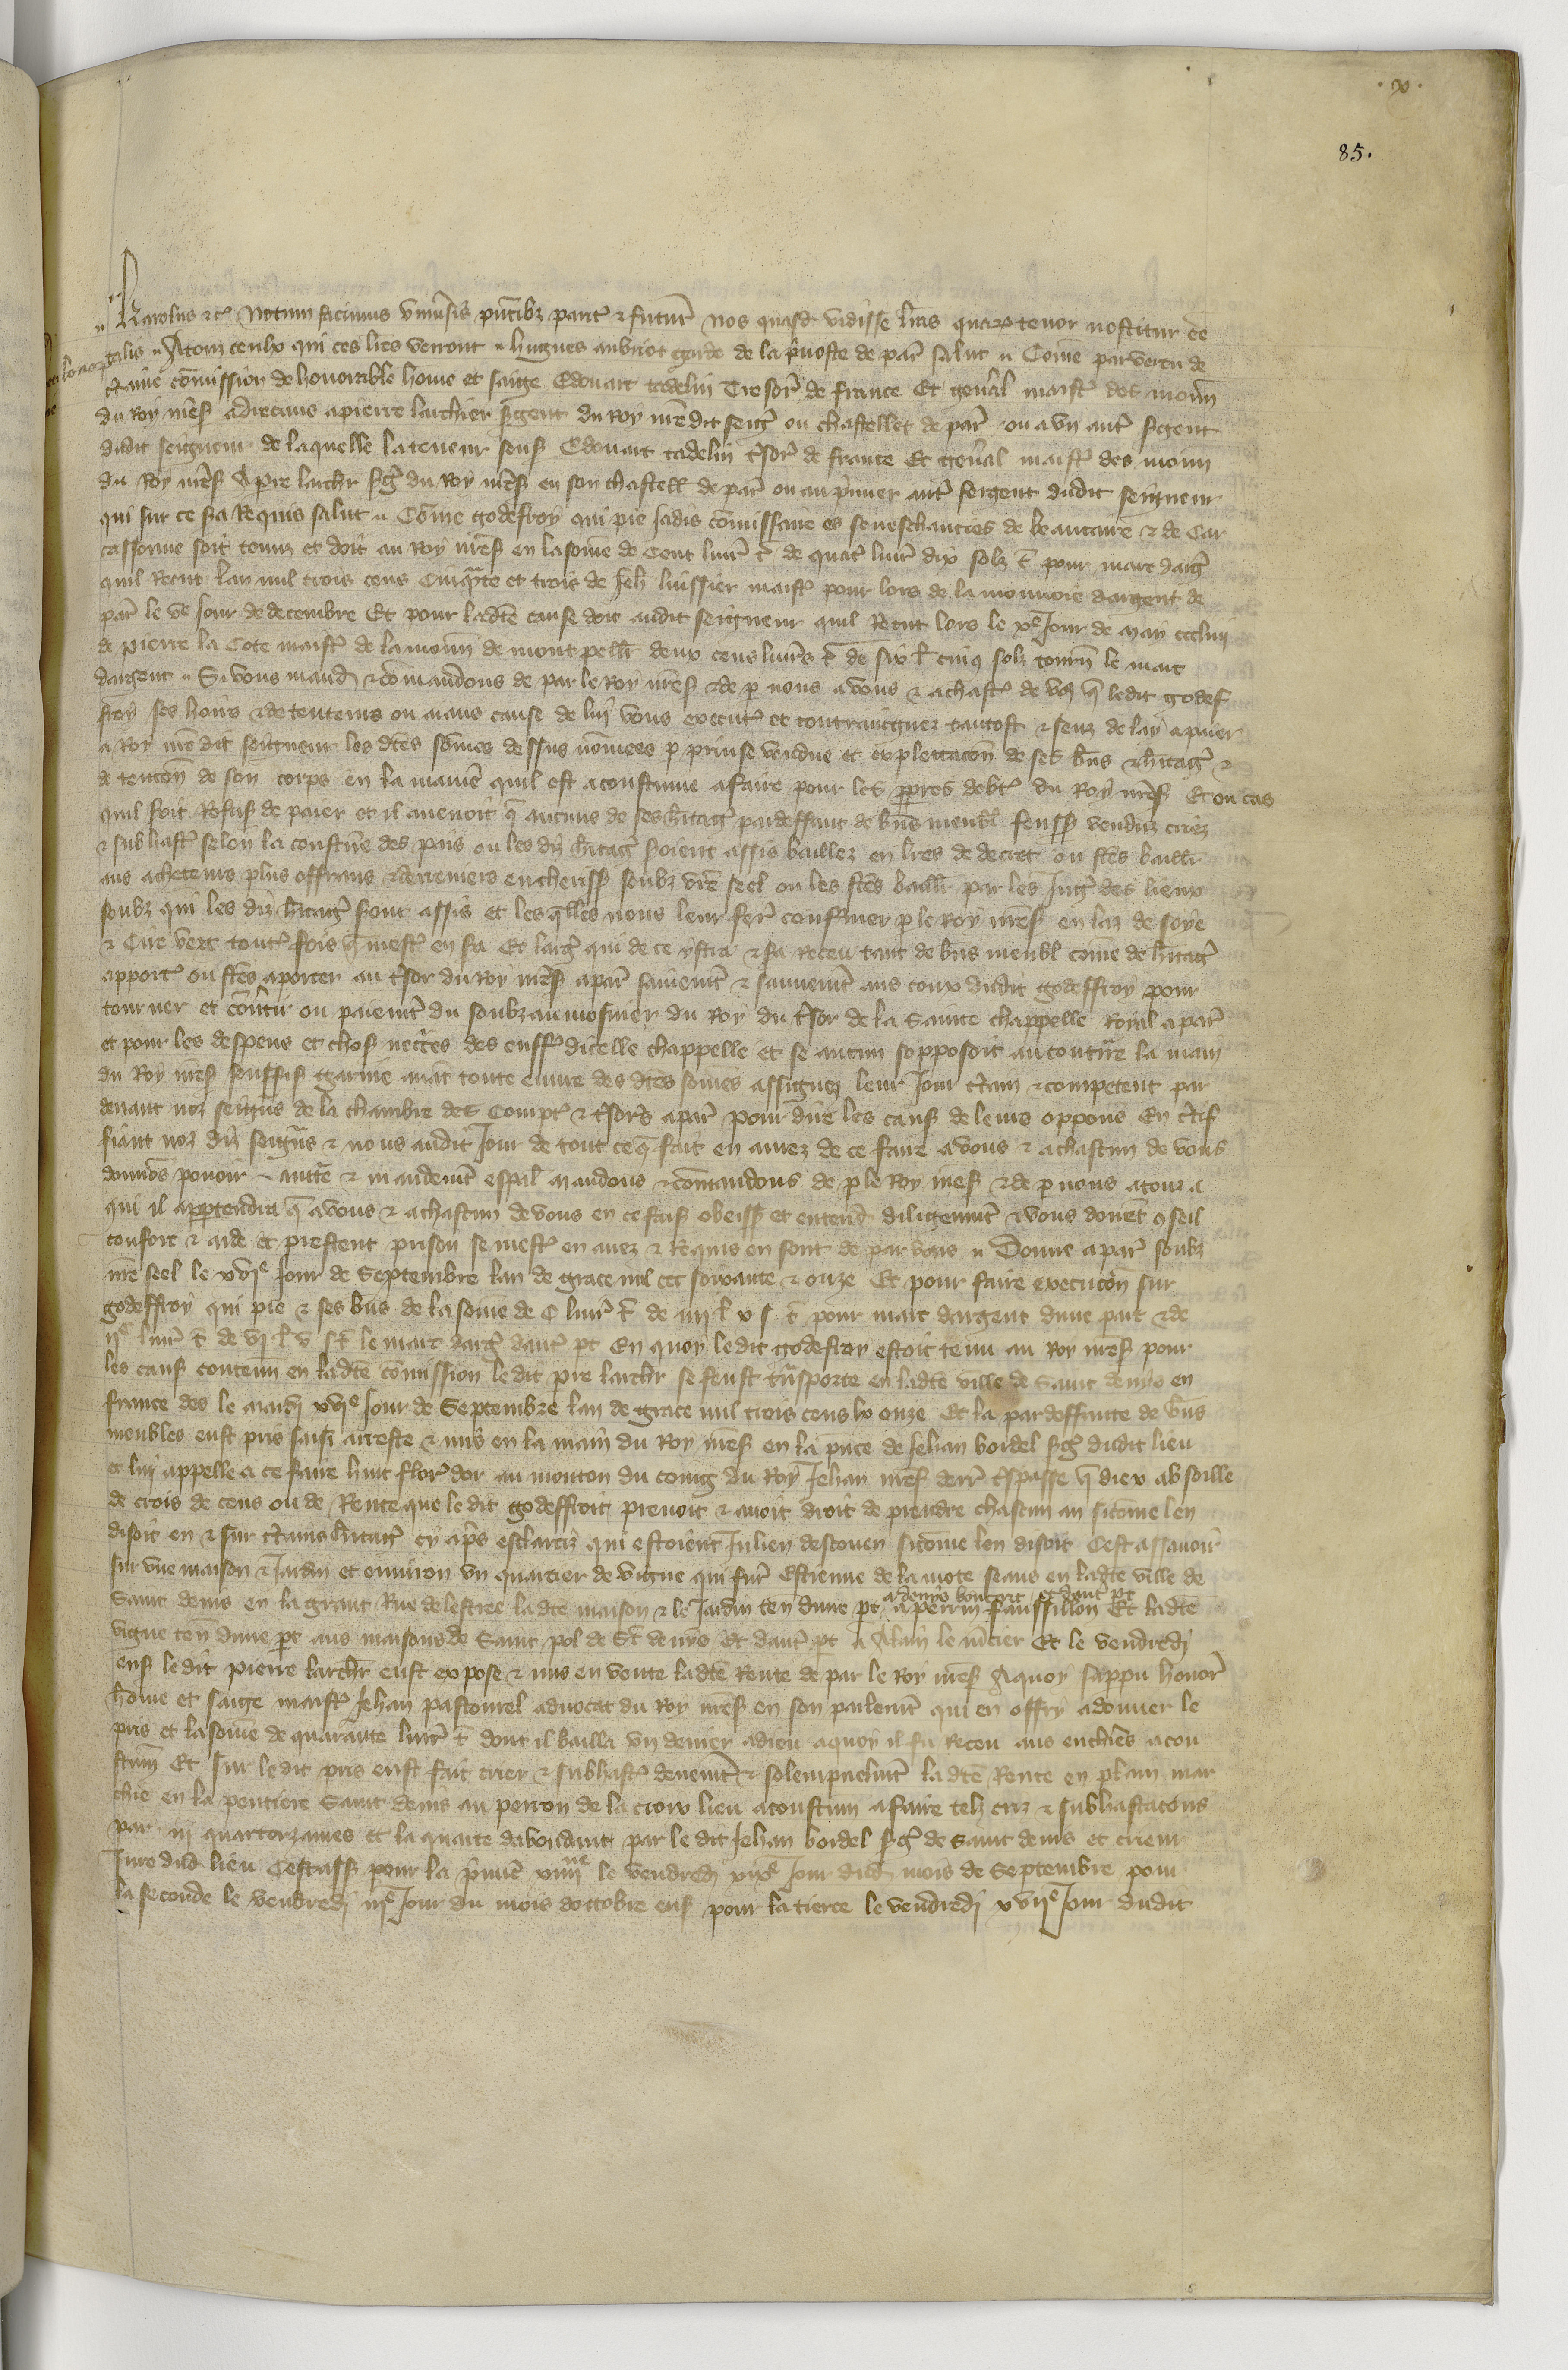 · x ·
85.
Karolus etc Notum facimus universis pntibz pariter et futur Nos quasd vidisse lras quarum tenor noscitur ee
talis Atouz ceulx qui ces lres verront hugues aubriot garde de la pvoste de par salut Come par vertu de
ctaine comission de honorable home et saige Edouart tadelin Tresor de france Et genal maistre des monn
du Roy nres adrecans a pierre larchier sgent du Roy nredit seign ou chastellet de par ou a un autre sgent
dudit seigneur de laquelle la teneur sens Edouart tadelin tsor de france Et genal maistre des monn
du Roy nres A pre larchr sg du Roy nres en son chastell de par ou au pmier autre sergent dudit seigneur
qui sur ce sa Requis salut Come godefroy qui pie Jadis comissaire es seneschaucies de beaucaire et de Car
cassonne soit tenuz et doit au Roy nres en la some de Cent livr t de quatre livr dix solz t pour marc darg
quil Recut lan mil trois cens Cinqte et trois de Jeh luissier maistre pour lors de la monnoie dargent de
par le ve Jour de decembre Et pour ladte cause doit audit seigneur quil Recut lors le xe Jour de may cccliiij
de pierre la Cote maistre de la monn de montpellr deux cens livrs t de six l cinq solz tourn le marc
dargent Si vous mand et comandons de par le Roy nres et de p nous a vous et a chastun de vos q ledit godef
froy ses hoirs et detenteurs ou aians cause de luy vous executez et contraingnez tantost et senz delay a paier
a Roy nredit seigneur les dtes somes dessus nomees p prinse vendue et explettacon de ses bns et hitag et
detencon de son corps en la maniere quil est acoustume a faire pour les ppres debtes du Roy nres Et ou cas
quil soit Refus de paier et il avenoit q aucuns de ses hitag par deffaut de bns meubl feuss venduz criez
et subhast selon la coustume des pais ou les diz hitag soient assis baillez en lres de decret ou ftes baillr
aus acheteurs plus offrans et derreniers encheriss soubz vre seel ou les ftes baillr par les Juges des lieux
soubz qui les diz hitag sont assis et lesqlles nous leur fer confmer p le Roy nres en laz de soye
et Cire vert toutes fois q mestier en sa Et larg qui de ce ystra et sa receu tant de bns meubl come de hitag
apport ou ftes aporter au tsor du Roy nres a par sainemt et sauvemt aus coux dudit godeffroy pour
tourner et convtir ou paiemt du soubzaumosnier du Roy du tsor de la Sainte chappelle Royal a par
et pour les despens et chos necces des enffans dicelle chappelle et se aucun sopposoit au contraire la main
du Roy nres souffis garnie avat toute euvre des dtes somes assignez leur Jour ctain et competent par
devant noz seignrs de la chambre des Comptes et tsors a par pour dire les caus de leurs oppons En ctif
fiant noz diz seignrs et nous audit Jour de tout ce q fait en aurez de ce faire a vous et a chastun de vous
donnons pouoir autte et mandemt espal mandons et comandons de p le Roy nres et de p nous a touz a
qui il apptendra q a vous et a chastun de vous en ce fais obeiss et entend diligemmt et vous donet cseil
confort et aide et prestent prison se mestier en avez et Requis en sont de par vous Donne a par soubz
nre seel le xvje Jour de Septembre lan de grace mil ccc soixante et onze Et pour faire execucon sur
godeffroy qui pie et ses bns de la some de C livr t de iiij l x s t pour marc dargent dune part et de
ijc livr t de vj l v s t le marc darg dautre pt En quoy ledit godefroy estoit tenu au Roy nres pour
les caus contenu en ladte comission ledit pre larchr se feust tnsporte en ladte ville de Saint denys en
france des le mardi xvje Jour de Septembre lan de grace mil trois cens lx onze Et la par deffaute de bns
meubles eust pris saisi arreste et mis en la main du Roy nres en la pnce de Jehan bordel sg dudit lieu
et lui appelle a ce faire huit flor dor au mouton du coing du Roy Jehan nres derr tspasse q diex absoille
de crois de cens ou de Rente que ledit godeffroit prenoit et avoit droit de prendre chascun an sicome len
disoit en et sur ctains hitag cy aps esclarciz qui estoient Julien descouen sicome len disoit Cest assavoir
sur une maison et Jardin et environ un quartier de vigne qui fur Estienne de la mote seans en ladte ville de
Saint denis en la grant Rue de lestree ladte maison et le Jardin ten dune pt a denys boucort et dautre pt a perrin faussillon Et ladte
vigne ten dune pt aus maisons de Saint pol de St denys Et dautre pt a Alain le mcier Et le vendredi
ens ledit pierre larchr eust expose et mis en vente ladte Rente de par le Roy nres A quoy sappu honor
home et saige maistre Jehan pastourel advocat du Roy nres en son parlemt qui en offry a donner le
pris et la some de quarante livr t dont il bailla un denier a dieu a quoy il fu Receu aus encheres acou
stum Et sur ledit pris eust fait crier et subhast deuemt et solempnelmt ladte Rente en plain mar
chie en la pentiere Saint denis au perron de la croix lieu acoustum a faire telz criz et subhastacons
par iij quartorzaines et la quarte dabondant par ledit Jehan bordel sg de Saint denis et crieur
Jure dud lieu Cestass pour la pmie xiiiine le vendredi xixe Jour dud mois de Septembre pour
la seconde le vendredi iije Jour du mois doctobre ens pour la tierce le vendredi xvije Jour dudit